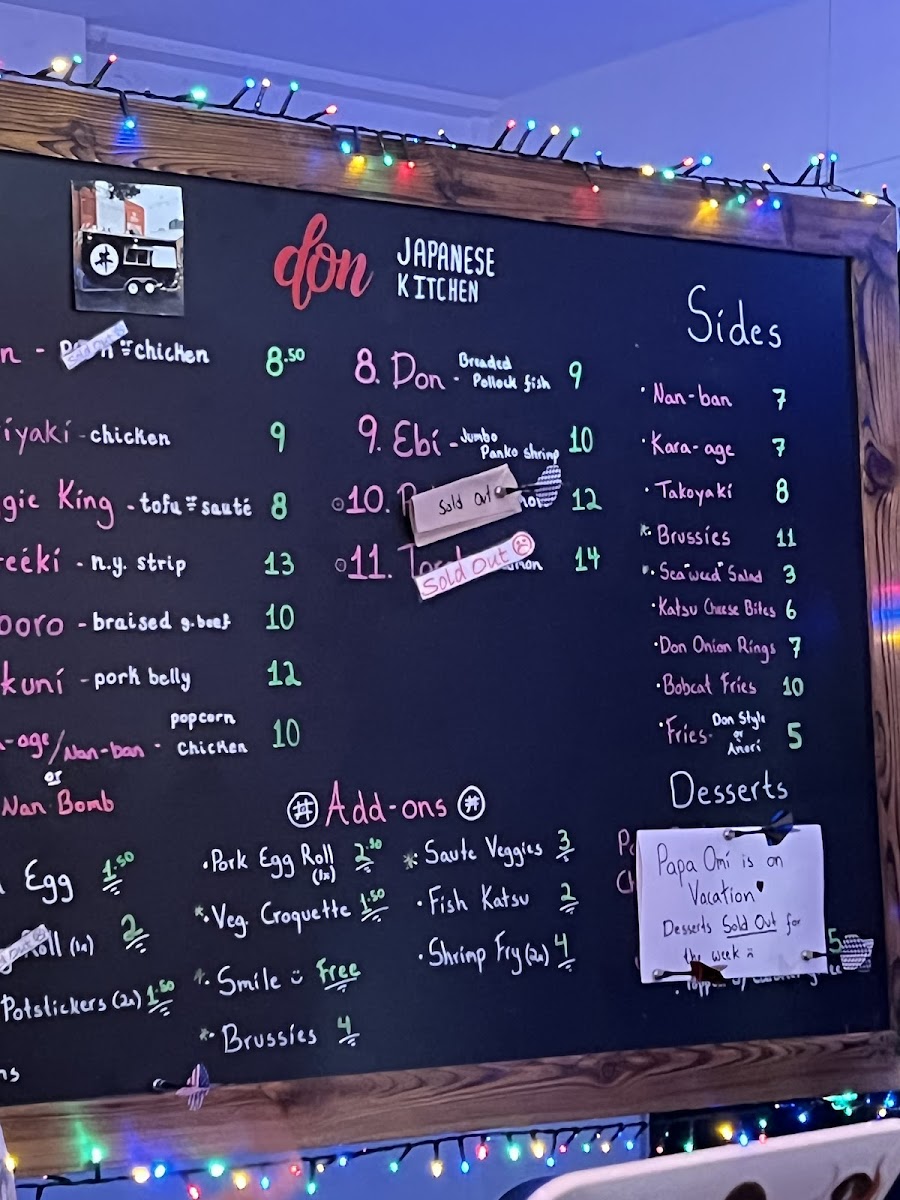 don JAPANESE
KITCHEN
n - or chicken 8.50
iyaki - chicken 9
gie King - tofu or sauté 8
eeki - n.y. strip 13
oro - braised g. beef 10
kuni - pork belly 12
-age/Nan-ban - popcorn
chicken 10
or
Nan Bomb
8. Don - Breaded
Pollock fish 9
9. Ebi - Jumbo
Panko Shrimp 10
10. Sold out 12
11. Sold Out 14
Sides
· Nan-ban 7
· Kara-age 7
· Takoyaki 8
*· Brussies 11
*· Sea"weed" Salad 3
· Katsu Cheese Bites 6
· Don Onion Rings 7
· Bobcat Fries 10
· Fries - Don Style
or
Anori 5
# Add-ons #
Egg 1.50
Roll (1x) 2
Potstickers (2x) 1.50
ns
· Pork Egg Roll 2.50
(1x)
*· Veg. Croquette 1.50
*· Smile Free
*· Brussies 4
*· Saute Veggies 3
· Fish Katsu 2
· Shrimp Fry (2x) 4
Desserts
Papa Omi is on
Vacation
Desserts Sold Out for
the week
5